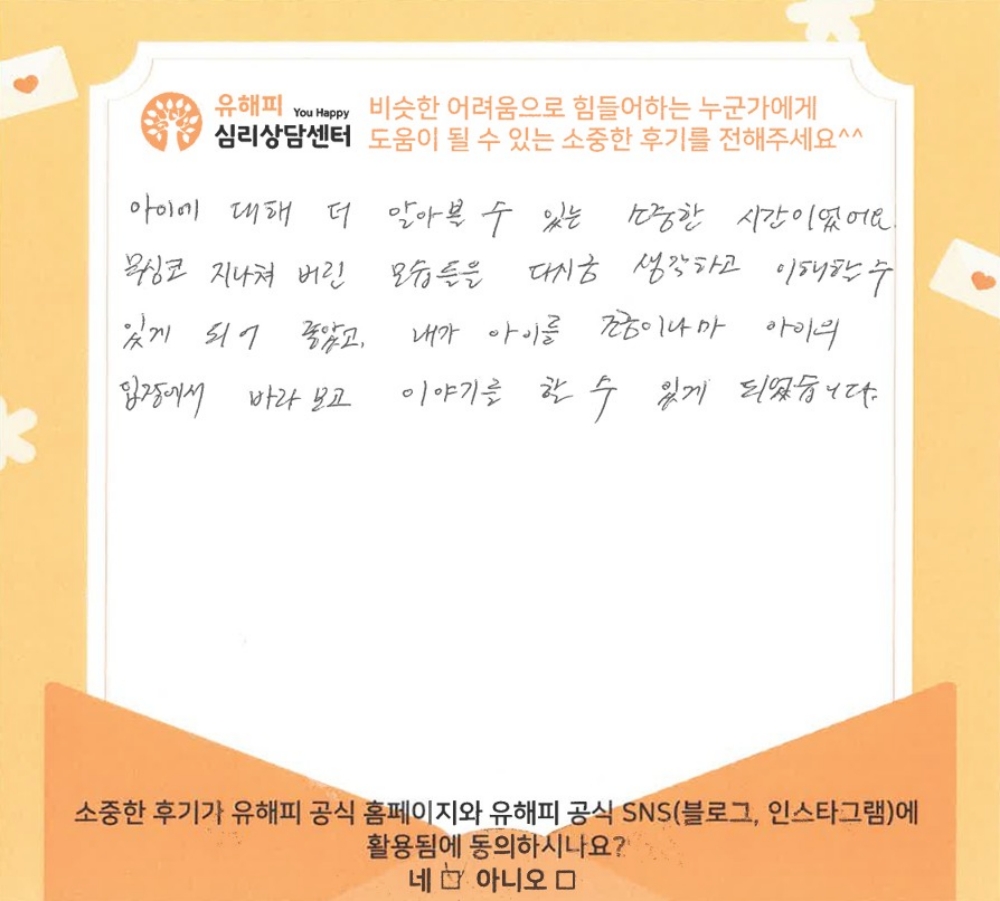 유해피 You Happy
심리상담센터
비슷한 어려움으로 힘들어하는 누군가에게
도움이 될 수 있는 소중한 후기를 전해주세요^^
아이에 대해 더 알아볼 수 있는 소중한 시간이었어요.
무심코 지나쳐 버린 모습들을 다시금 생각하고 이해할 수
있게 되어 좋았고, 내가 아이를 조금이나마 아이의
입장에서 바라보고 이야기를 할 수 있게 되었습니다.
소중한 후기가 유해피 공식 홈페이지와 유해피 공식 SNS(블로그, 인스타그램)에
활용됨에 동의하시나요?
네 ☑ 아니오 □